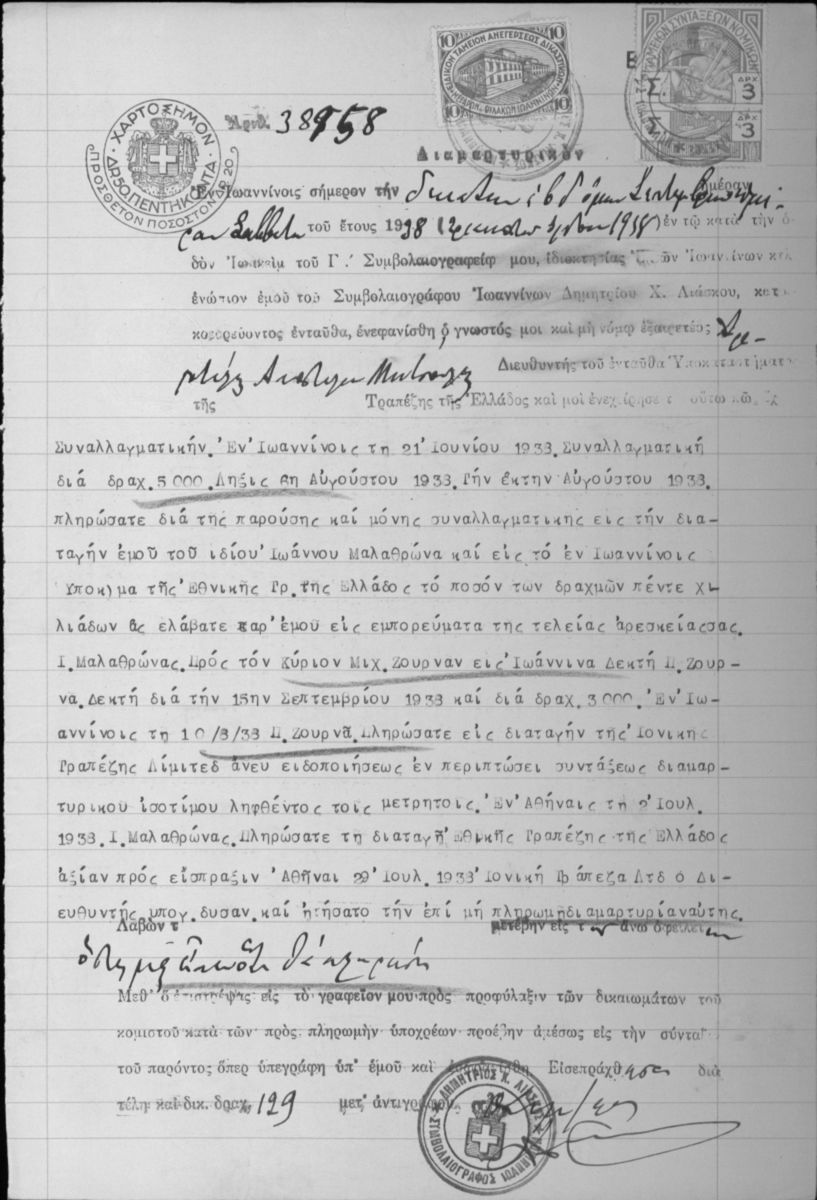 10 10
ΕΙΔΙΚΟΝ ΤΑΜΕΙΟΝ ΑΝΕΓΕΡΣΕΩΣ ΔΙΚΑΣΤΙΚΩΝ
ΦΥΛΑΚΩΝ ΙΩΑΝΝΙΝΩΝ
10 10
ΤΑΜΕΙΟΝ ΣΥΝΤΑΞΕΩΝ ΝΟΜΙΚΩΝ
Σ. ΔΡΧ 3
Σ ΔΡΧ 3
ΧΑΡΤΟΣΗΜΟΝ
ΔΡ 50 ΠΕΝΤΗΚΟΝΤΑ
ΠΡΟΣΘΕΤΟΝ ΠΟΣΟΣΤΟΝ ΔΡ 20
Ἀριθ. 38758
Διαμαρτυρικὸν
Ἐν Ἰωαννίνοις σήμερον τὴν δεκάτην ἑβδόμην ἡμέραν
Σάββατον τοῦ ἔτους 1938 1938) ἐν τῷ κατὰ τὴν ὁ-
δὸν Ἰωακεὶμ τοῦ Γ.΄ Συμβολαιογραφείῳ μου, ἰδιοκτησίας Ἰωαννίνων καὶ
ἐνώπιον ἐμοῦ τοῦ Συμβολαιογράφου Ἰωαννίνων Δημητρίου Χ. Λιάσκου, κατοι-
κοεδρεύοντος ἐνταῦθα, ἐνεφανίσθη ὁ γνωστός μοι καὶ μὴ νόμῳ ἐξαιρετέος
Διευθυντής τοῦ ἐνταῦθα Ὑποκαταστήματος
τῆς Τραπέζης τῆς Ἑλλάδος καὶ μοὶ ἐνεχείρησε
Συναλλαγματικήν. Ἐν Ἰωαννίνοις τη 21 Ιουνίου 1938. Συναλλαγματική
διά δραχ. 5000. Ληξις 6η Αὐγούστου 1938. Τήν ἐκτην Αὐγούστου 1938.
πληρώσατε διά της παρούσης καί μόνης συναλλαγματικης εις τήν δια-
ταγήν ἐμοῦ τοῦ ιδίου Ἰωάννου Μαλαθρώνα καί εἰς τό ἐν Ἰωαννίνοις
Υποκ)μα τῆς Ἐθνικῆς Τρ. τῆς Ελλάδος τό ποσόν των δραχμῶν πέντε χι-
λιάδων ἅς ελάβατε παρ' ἐμοῦ εἰς εμπορεύματα της τελείας ἀρεσκείας σας.
Ι. Μαλαθρώνας. Πρός τόν Κύριον Μιχ. Ζουρναν εις Ἰωάννινα Δεκτή Π. Ζουρ-
να. Δεκτή διά τήν 15ην Σεπτεμβρίου 1938 καί διά δραχ. 3000. Ἐν Ἰω-
αννίνοις τη 10/8/38 Π. Ζουρνᾶ. Πληρώσατε εἰς διαταγήν τῆς Ἰονικῆς
Τραπέζης Λίμιτεδ ἄνευ ειδοποιήσεως ἐν περιπτώσει συντάξεως διαμαρ-
τυρικοῦ ἰσοτίμου ληφθέντος τοις μετρητοις. Ἐν Ἀθήναις τη 2 Ιουλ.
1938. Ι. Μαλαθρώνας. Πληρώσατε τη διαταγῇ Ἐθικῆς Τραπέζης της Ελλάδος
ἀξίαν πρός εἴσπραξιν Ἀθῆναι 29 Ιουλ. 1938 Ιονική Τράπεζα Λτδ ὁ Δι-
ευθυντής υπογ. δυσαν. καί ἠτήσατο τήν ἐπί μή πληρωμῇ διαμαρτυρίαν αὐτης.
Λαβὼν τ μετέβην εἰς τ ἄνω ὀφειλέτ
Μεθ' ὅ ἐπιστρέψας εἰς τὸ γραφεῖον μου πρὸς προφύλαξιν τῶν δικαιωμάτων τοῦ
κομιστοῦ κατὰ τῶν πρὸς πληρωμὴν ὑποχρέων προέβην ἀμέσως εἰς τὴν σύνταξ
τοῦ παρόντος ὅπερ ὑπεγράφη ὑπ' ἐμοῦ καὶ Εἰσεπράχθησαν διὰ
τέλη καὶ δικ. δραχ. 129 μετ' ἀντιγράφου.
ΔΗΜΗΤΡΙΟΣ Χ. ΛΙΑΣΚΟΣ
ΣΥΜΒΟΛΑΙΟΓΡΑΦΟΣ ΙΩΑΝΝΙΝΩΝ